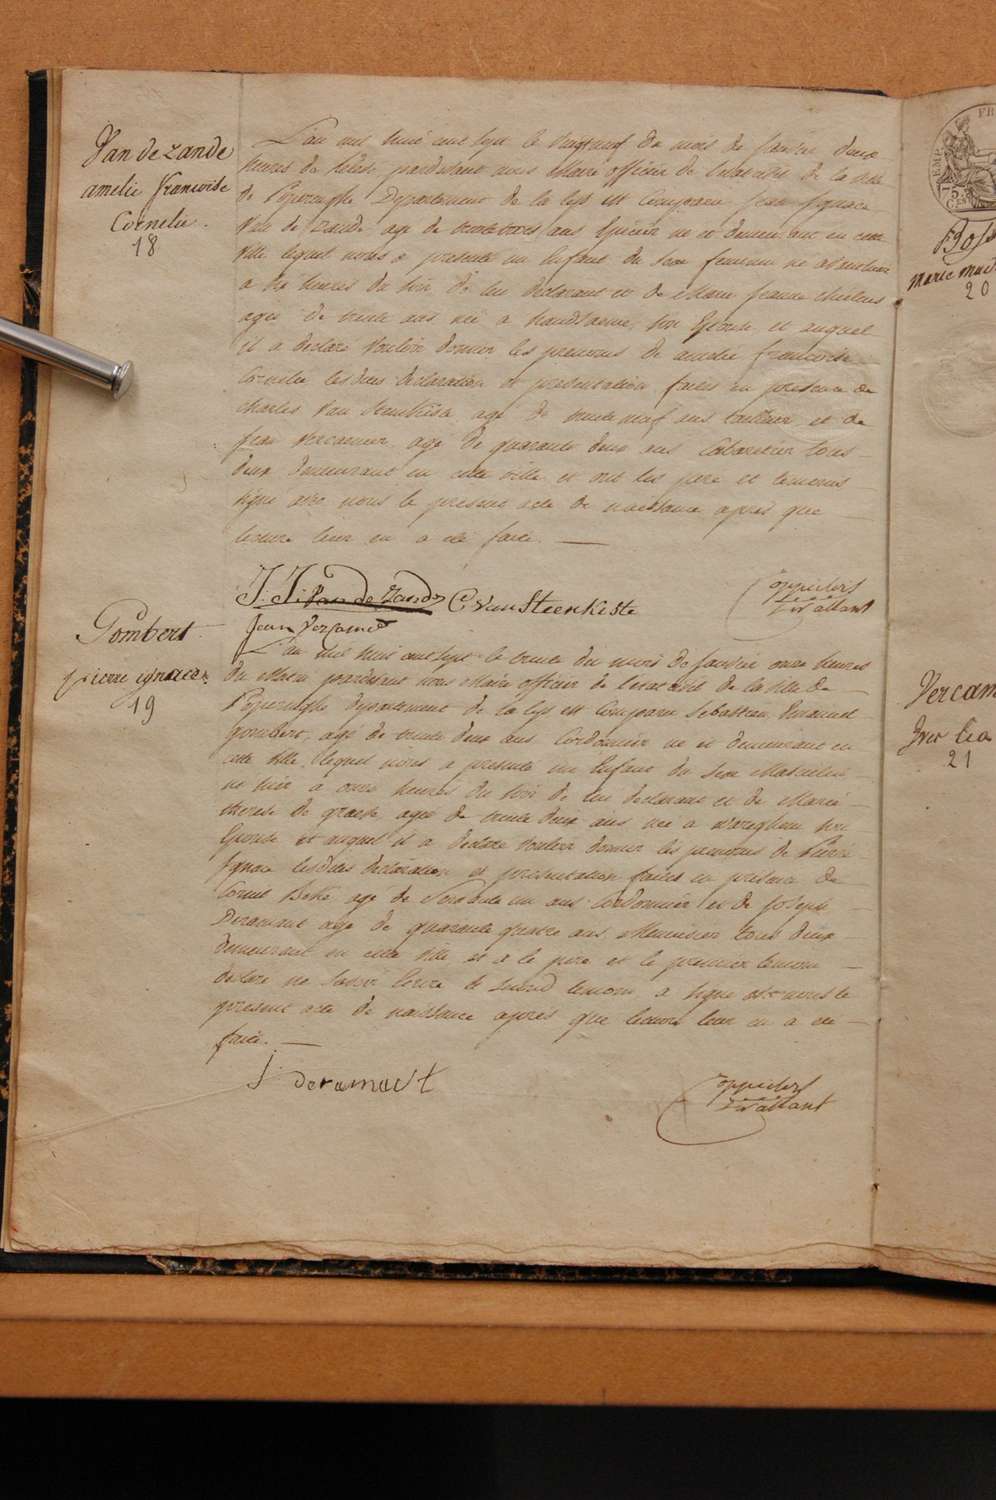 Van de zande
amelie francoise
Cornelie.
18
L'an mil huit cent sept le vingt neuf du mois de Janvier deux
heures de pardevant nous Maire officier de l'etat civil de la ville
de Poperinghe Departement de la Lys est Comparu Jean Ignace
Van de Zande age de trente trois ans Epicier ne et demeurant en cette
ville lequel nous a presente un Enfant du Sexe feminin ne
a dix heures du soir de lui declarant et de Marie Jeanne
agee de trente ans née a son Epouse et auquel
il a declaré vouloir donner les prenoms de amelie francoise
Cornelie lesdites declaration et presentation faites en presence de
Charles Van Steenkiste age de trente neuf ans et de
Jean Vercamer age de quarante deux ans Cabaretier tous
deux demeurant en cette ville et ont les pere et temoins
signe avec nous le present acte de naissance apres que
lecture leur en a été faite.
J. J. Van de Zande C Van Steenkiste
Jean Vercamer
Gombert
pierre ignace
19
L'an mil huit cent sept le trente du mois de Janvier onze heures
du Matin pardevant nous Maire officier de l'etat civil de la ville de
Poperinghe departement de la Lys est Comparu Sebastien Emanuel
gombert, age de trente deux ans Cordonnier ne et demeurant en
cette ville, lequel nous a presente un Enfant du Sexe Masculin
ne hier a onze heures du soir de lui declarant et de Marie
therese de graeve agee de trente deux ans née a Wareghem son
Epouse et auquel il a declaré vouloir donner les prenoms de Pierre
Ignace lesdites declaration et presentation faites en presence de
Cornil age de Soixante un ans Cordonnier et de Joseph
Deramaut age de quarante quatre ans Menuisier tous deux
demeurant en cette ville et a le pere et le premier temoin
declare ne savoir Ecrire le second temoin a signe avec nous le
present acte de naissance apres que lecture leur en a été
faite.
J: deramault
Marie
20
Vercam
21